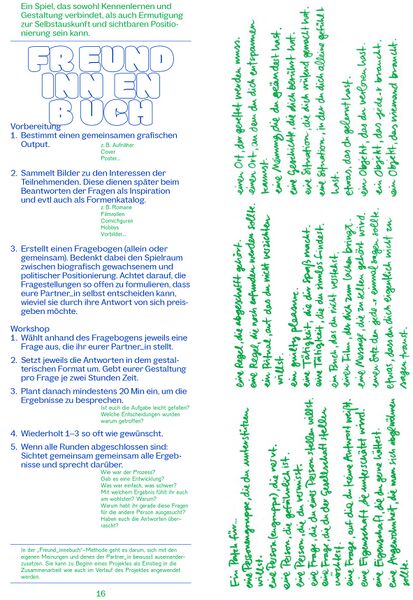 Ein Spiel, das sowohl Kennenlernen und
Gestaltung verbindet, als auch Ermutigung
zur Selbstauskunft und sichtbaren Positio-
nierung sein kann.
FREUND
INN EN
BUCH
Vorbereitung
1. Bestimmt einen gemeinsamen grafischen
Output.
z. B. Aufnäher
Cover
Poster...
2. Sammelt Bilder zu den Interessen der
Teilnehmenden. Diese dienen später beim
Beantworten der Fragen als Inspiration
und evtl auch als Formenkatalog.
z. B. Romane
Filmrollen
Comicfiguren
Hobbys
Vorbilder...
3. Erstellt einen Fragebogen (allein oder
gemeinsam). Bedenkt dabei den Spielraum
zwischen biografisch gewachsenem und
politischer Positionierung. Achtet darauf, die
Fragestellungen so offen zu formulieren, dass
eure Partner_in selbst entscheiden kann,
wieviel sie durch ihre Antwort von sich preis-
geben möchte.
Workshop
1. Wählt anhand des Fragebogens jeweils eine
Frage aus, die ihr eurer Partner_in stellt.
2. Setzt jeweils die Antworten in dem gestal-
terischen Format um. Gebt eurer Gestaltung
pro Frage je zwei Stunden Zeit.
3. Plant danach mindestens 20 Min ein, um die
Ergebnisse zu besprechen.
Ist euch die Aufgabe leicht gefallen?
Welche Entscheidungen wurden
warum getroffen?
4. Wiederholt 1–3 so oft wie gewünscht.
5. Wenn alle Runden abgeschlossen sind:
Sichtet gemeinsam gemeinsam alle Ergeb-
nisse und sprecht darüber.
Wie war der Prozess?
Gab es eine Entwicklung?
Was war einfach, was schwer?
Mit welchem Ergebnis fühlt ihr euch
am wohlsten? Warum?
Warum habt ihr gerade diese Fragen
für die andere Person ausgesucht?
Haben euch die Antworten über-
rascht?
In der „Freund_innebuch"-Methode geht es darum, sich mit den
eigenen Meinungen und denen der Partner_in bewusst auseinander-
zusetzen. Sie kann zu Beginn eines Projektes als Einstieg in die
Zusammenarbeit wie auch im Verlauf des Projektes angewendet
werden.
16
Ein Patch für...
eine Personengruppe, die du unterstützen
willst
eine Person(engruppe), die nervt.
eine Person, die gefährlich ist.
eine Person, die du vermisst.
eine Frage, die du einer Person stellen willst
eine Frage, die du der Gesellschaft stellen
möchtest.
eine Frage, auf die du keine Antwort weißt.
eine Eigenschaft, die unterschätzt wird.
eine Eigenschaft, die du gerne hättest.
eine Angewohnheit, die man sich abgewöhnen
sollte
eine Regel, die abgeschafft gehört.
eine Regel, die noch erfunden werden sollte.
ein Ritual, auf das du nicht verzichten
willst.
ein guilty pleasure.
eine Tätigkeit, die dir Spaß macht.
eine Tätigkeit, die du sinnlos findest.
ein Buch, das du nicht verleihst.
einen Film, der dich zum Lachen bringt.
eine Message, die zu selten gehört wird.
einen Satz der jede*r einmal sagen sollte.
etwas, dass du dich eigentlich nicht zu
sagen traust.
einen Ort, der gerettet werden muss.
einen Ort, an dem du dich entspannen
kannst.
eine Meinung, die du geändert hast.
eine Geschichte, die dich berührt hat.
eine Situation, die dich wütend gemacht hat.
eine Situation, in der du dich alleine gefühlt
hast.
etwas, das du gelernt hast.
ein Objekt, das du verloren hast.
ein Objekt, das jede*r braucht.
ein Objekt, das niemand braucht.